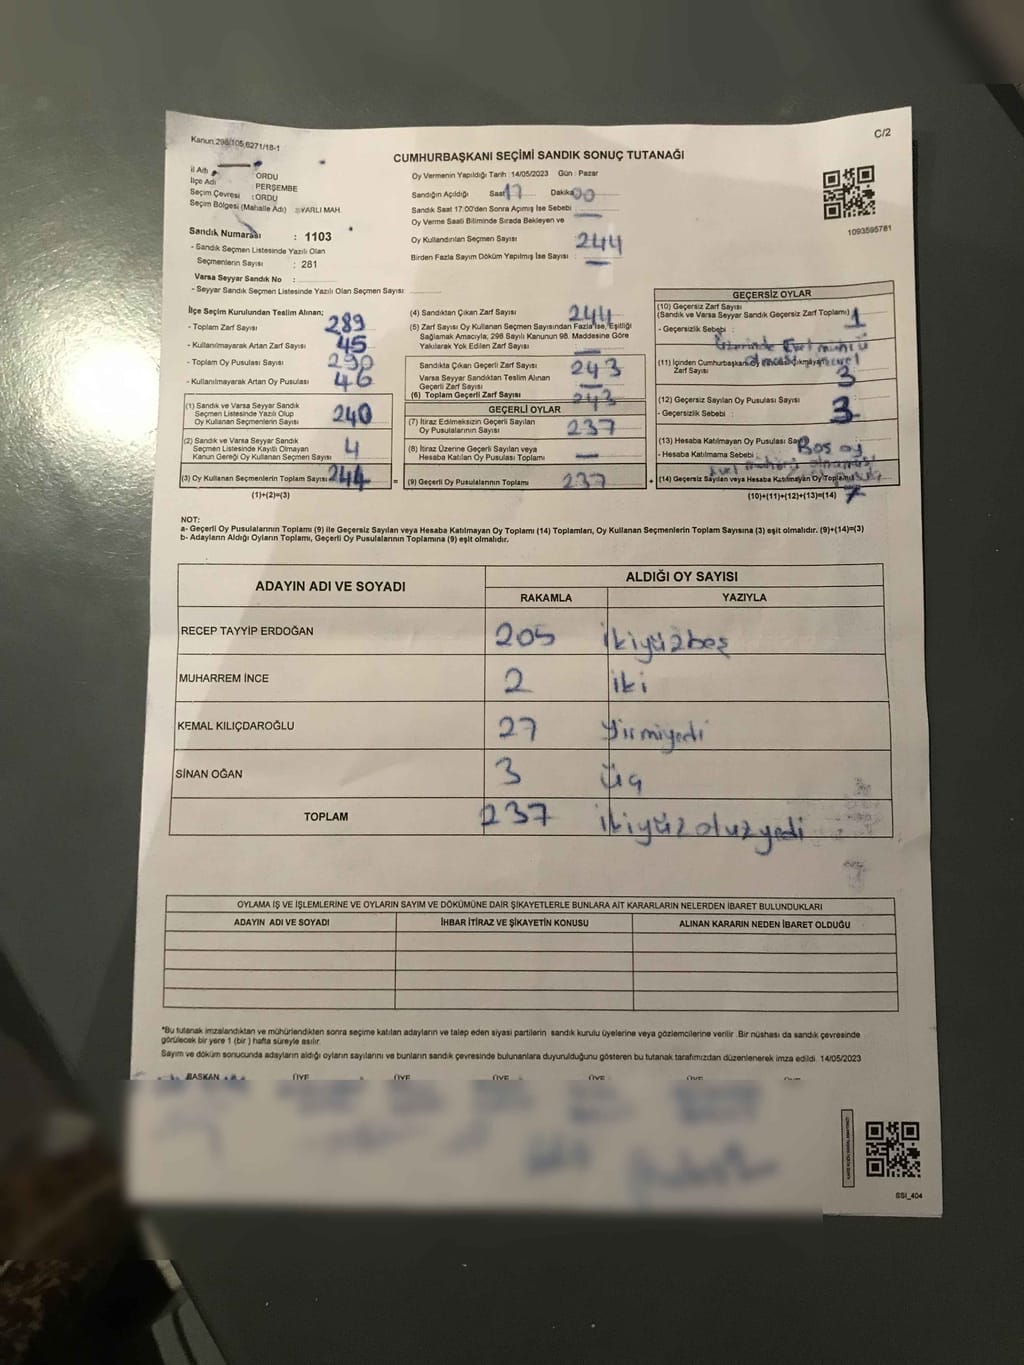 Kanun.298/105,6271/18-1
C/2
CUMHURBAŞKANI SEÇİMİ SANDIK SONUÇ TUTANAĞI
İl Adı : ORDU
İlçe Adı : PERŞEMBE
Seçim Çevresi : ORDU
Seçim Bölgesi (Mahalle Adı) : YARLI MAH.
Sandık Numarası : 1103
- Sandık Seçmen Listesinde Yazılı Olan
Seçmenlerin Sayısı : 281
Varsa Seyyar Sandık No :
- Seyyar Sandık Seçmen Listesinde Yazılı Olan Seçmen Sayısı:
Oy Vermenin Yapıldığı Tarih : 14/05/2023 Gün : Pazar
Sandığın Açıldığı Saat 17 Dakika 00
Sandık Saat 17:00'den Sonra Açımış İse Sebebi
Oy Verme Saati Bitiminde Sırada Bekleyen ve
Oy Kullandırılan Seçmen Sayısı 244
Birden Fazla Sayım Döküm Yapılmış İse Sayısı : —
1093595781
İlçe Seçim Kurulundan Teslim Alınan;
- Toplam Zarf Sayısı 289
- Kullanılmayarak Artan Zarf Sayısı 45
- Toplam Oy Pusulası Sayısı 290
- Kullanılmayarak Artan Oy Pusulası 46
(1) Sandık ve Varsa Seyyar Sandık
Seçmen Listesinde Yazılı Olup
Oy Kullanan Seçmenlerin Sayısı 240
(2) Sandık ve Varsa Seyyar Sandık
Seçmen Listesinde Kayıtlı Olmayan
Kanun Gereği Oy Kullanan Seçmen Sayısı 4
(3) Oy Kullanan Seçmenlerin Toplam Sayısı 244 =
(1)+(2)=(3)
(4) Sandıktan Çıkan Zarf Sayısı 244
(5) Zarf Sayısı Oy Kullanan Seçmen Sayısından Fazla İse, Eşitliği
Sağlamak Amacıyla; 298 Sayılı Kanunun 98. Maddesine Göre
Yakılarak Yok Edilen Zarf Sayısı —
Sandıkta Çıkan Geçerli Zarf Sayısı 243
Varsa Seyyar Sandıktan Teslim Alınan
Geçerli Zarf Sayısı —
(6) Toplam Geçerli Zarf Sayısı 243
GEÇERLİ OYLAR
(7) İtiraz Edilmeksizin Geçerli Sayılan
Oy Pusulalarının Sayısı 237
(8) İtiraz Üzerine Geçerli Sayılan veya
Hesaba Katılan Oy Pusulası Toplamı —
(9) Geçerli Oy Pusulalarının Toplamı 237 +
GEÇERSİZ OYLAR
(10) Geçersiz Zarf Sayısı
(Sandık ve Varsa Seyyar Sandık Geçersiz Zarf Toplamı) 1
- Geçersizlik Sebebi :
Üzerinde Evet mührü
(11) İçinden Cumhurbaşkanı Oy
Zarf Sayısı 3
(12) Geçersiz Sayılan Oy Pusulası Sayısı 3
- Geçersizlik Sebebi :
(13) Hesaba Katılmayan Oy Pusulası
- Hesaba Katılmama Sebebi : Boş oy
(14) Geçersiz Sayılan veya Hesaba Katılmayan Oy Toplamı 7
(10)+(11)+(12)+(13)=(14)
NOT:
a- Geçerli Oy Pusulalarının Toplamı (9) ile Geçersiz Sayılan veya Hesaba Katılmayan Oy Toplamı (14) Toplamları, Oy Kullanan Seçmenlerin Toplam Sayısına (3) eşit olmalıdır. (9)+(14)=(3)
b- Adayların Aldığı Oyların Toplamı, Geçerli Oy Pusulalarının Toplamına (9) eşit olmalıdır.
ADAYIN ADI VE SOYADI
ALDIĞI OY SAYISI
RAKAMLA YAZIYLA
RECEP TAYYİP ERDOĞAN 205 ikiyüzbeş
MUHARREM İNCE 2 iki
KEMAL KILIÇDAROĞLU 27 yirmiyedi
SİNAN OĞAN 3 üç
TOPLAM 237 ikiyüzotuzyedi
OYLAMA İŞ VE İŞLEMLERİNE VE OYLARIN SAYIM VE DÖKÜMÜNE DAİR ŞİKAYETLERLE BUNLARA AİT KARARLARIN NELERDEN İBARET BULUNDUKLARI
ADAYIN ADI VE SOYADI İHBAR İTİRAZ VE ŞİKAYETİN KONUSU ALINAN KARARIN NEDEN İBARET OLDUĞU
*Bu tutanak imzalandıktan ve mühürlendikten sonra seçime katılan adayların ve talep eden siyasi partilerin sandık kurulu üyelerine veya gözlemcilerine verilir. Bir nüshası da sandık çevresinde
görülecek bir yere 1 (bir) hafta süreyle asılır.
Sayım ve döküm sonucunda adayların aldığı oyların sayılarını ve bunların sandık çevresinde bulunanlara duyurulduğunu gösteren bu tutanak tarafımızdan düzenlenerek imza edildi. 14/05/2023
BAŞKAN ÜYE ÜYE ÜYE ÜYE ÜYE ÜYE
SSI_404